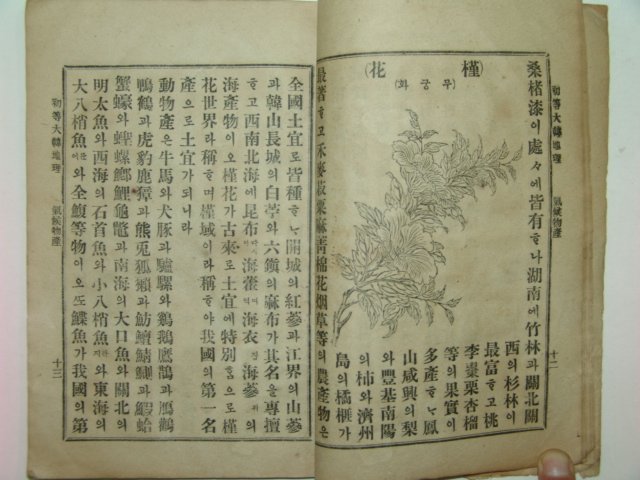 初等大韓地理 氣候物産 十二
桑楮漆이處々에皆有ᄒᆞ나湖南에竹林과關北關
(槿花)
무궁화
西의杉林이
最富ᄒᆞ고桃
李棗栗杏榴
等의果實이
多產ᄒᆞᄂᆞᆫ鳳
山咸興의梨
와豐基南陽
의柿와濟州
島의橘榧가
最著ᄒᆞ고禾麥菽粟麻靑棉花烟草等의農產物은
全國土宜로皆種ᄒᆞᄂᆞᆫ開城의紅蔘과江界의山蔘
과韓山長城의白苧와六鎭의麻布가其名을專擅
ᄒᆞ고西南北海에昆布海藿海衣김海蔘의
海產物이오槿花가古來로土宜에特別ᄒᆞᆷ으로槿
花世界라稱ᄒᆞ며槿域이라稱ᄒᆞ야我國의第一名
產으로土宜가되니라
動物產은牛馬와犬豚과驢騾와鷄鷹과鴈鶴
鴨鶴과虎豹鹿獐과熊兎狐獺과魴鱣鯖鯽과蛤
蟹蠔와螺鯉龜鼈과南海의大口魚와關北의
明太魚와西海의石首魚와小八梢魚와東海의
大八梢魚와全鰒等物이오ᄯᅩ鰈魚가我國의第
初等大韓地理 氣候物産 十三